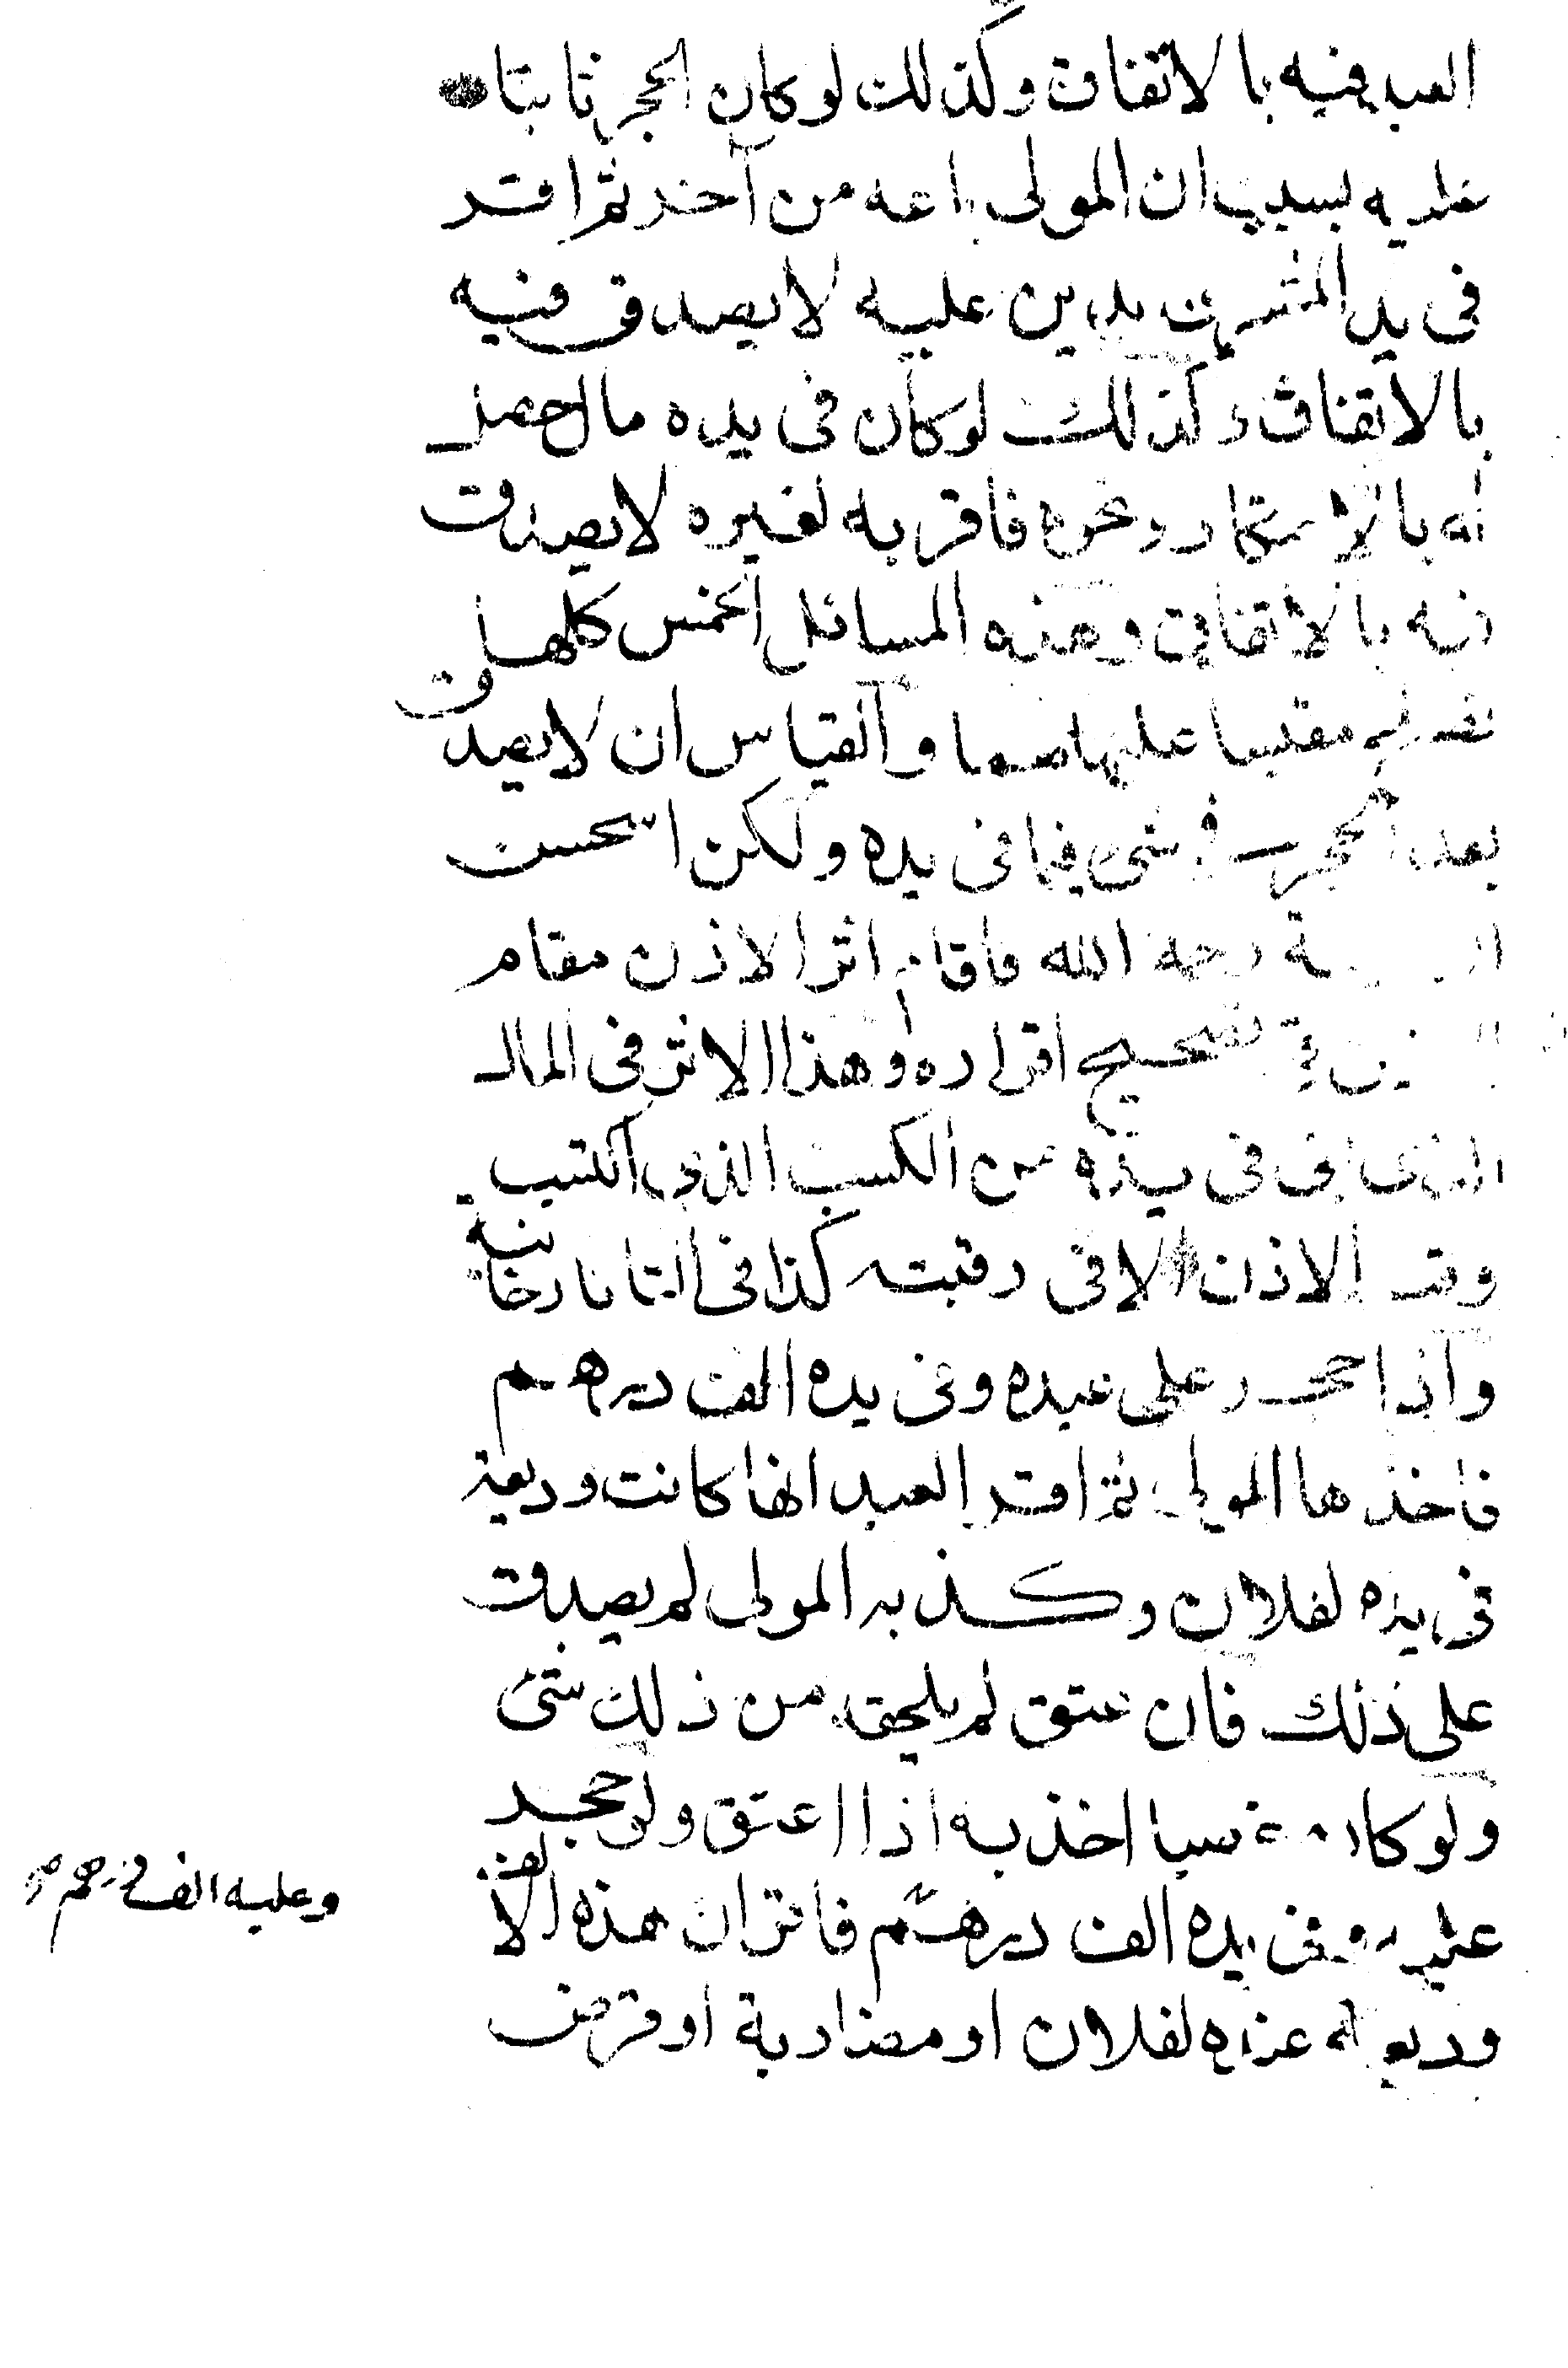 العبد فيه بالاتفاق وكذلك لو كان الحجر ثابتا
عليه بسبب ان المولى باعه من آخر ثم اقر
فى يد المشترى بدين عليه لا يصدق فيه
بالاتفاق وكذلك لو كان فى يده مال حصل
له بالا ونحوه فاقر به لغيره لا يصدق
فيه بالاتفاق وهذه المسائل الخمس كلها
عليها والقياس ان لا يصدق
بعد الحجر فى شى فيما فى يده ولكن استحسن
رحمه الله فاقام اثر الاذن مقام
تصحيح اقراره وهذا الاثر فى المال
الذى فى يده من الكسب الذى اكتسب
وقت الاذن لا فى رقبته كذا فى التاتارخانية
واذا حجر على عبده وفى يده الف درهم
فاخذها المولى ثم اقر العبد انها كانت وديعة
فى يده لفلان وكذبه المولى لم يصدق
على ذلك فان عتق لم يلحقه من ذلك شئ
ولو كان اخذ به اذا اعتق ولو حجر
عليه وفى يده الف درهم فاقر ان هذه الالف
وعليه الف درهم صح
وديعة عنده لفلان او مضاربة او قرض